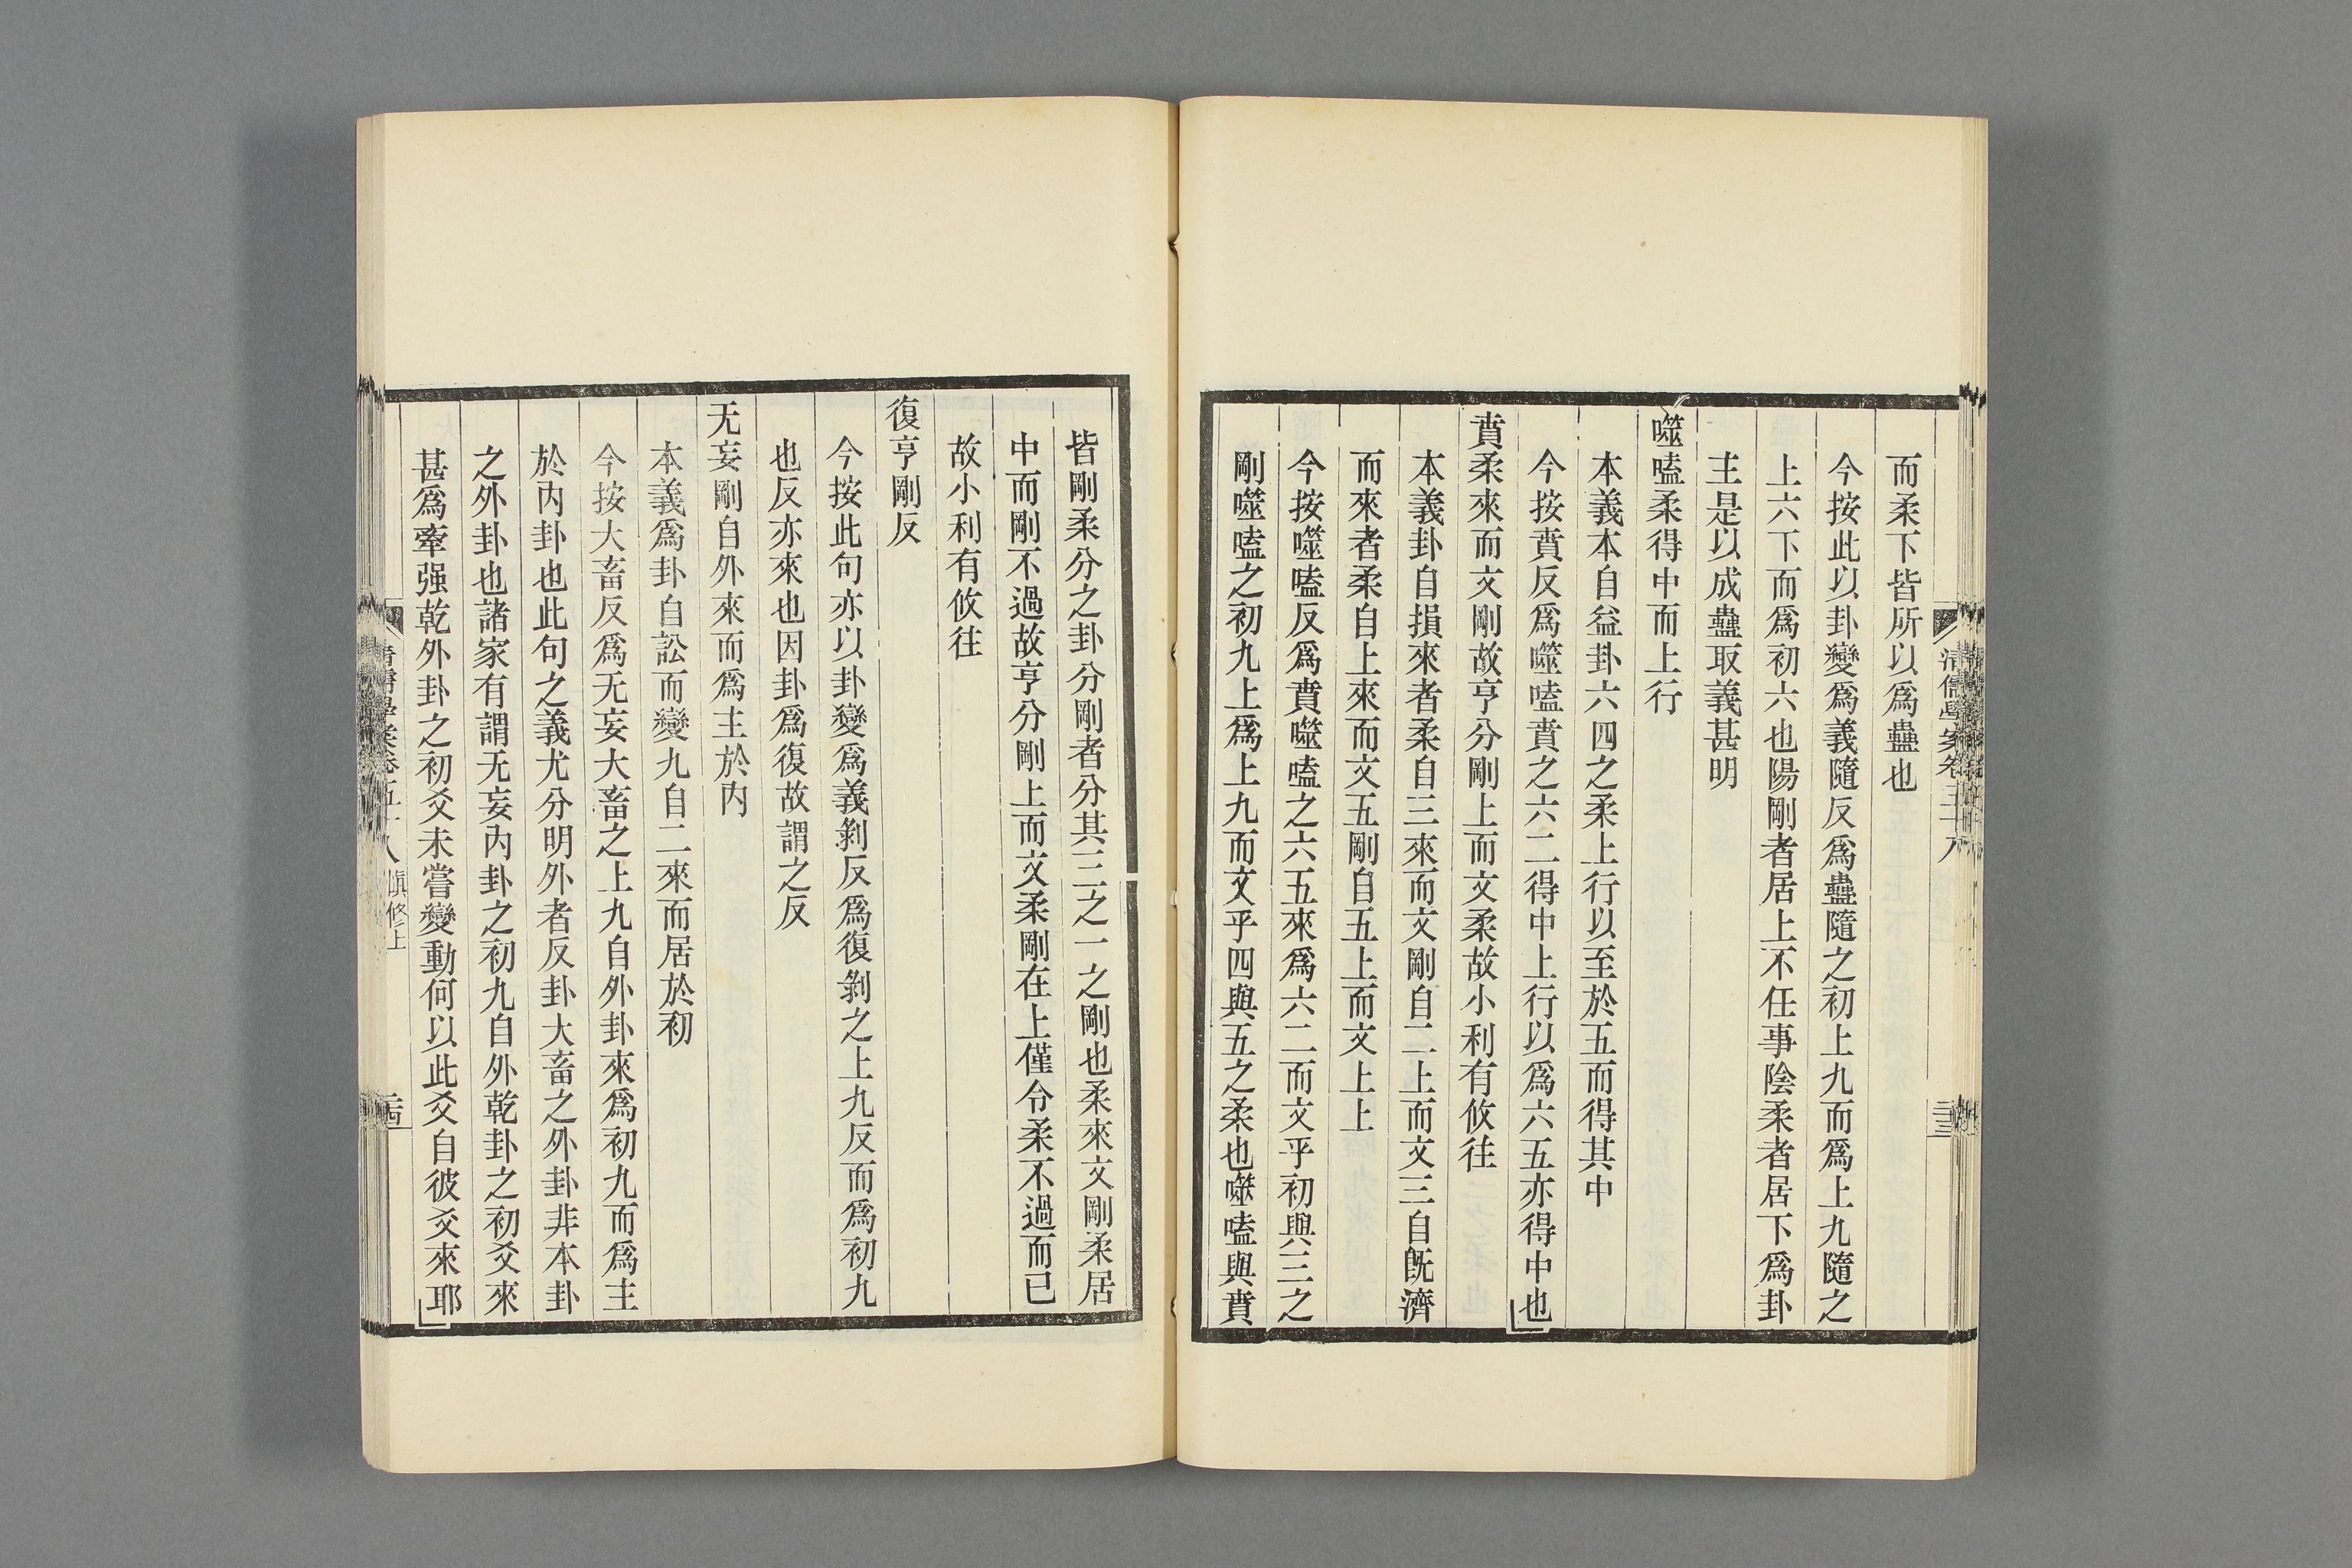 清儒學案卷五十八
二十三
而柔下皆所以爲蠱也
今按此以卦變爲義隨反爲蠱隨之初上九而爲上九隨之
上六下而爲初六也陽剛者居上不任事陰柔者居下爲卦
主是以成蠱取義甚明
噬嗑柔得中而上行
本義本自益卦六四之柔上行以至於五而得其中
今按賁反爲噬嗑賁之六二得中上行以爲六五亦得中也
賁柔來而文剛故亨分剛上而文柔故小利有攸往
本義卦自損來者柔自三來而文剛自二上而文三自既濟
而來者柔自上來而文五剛自五上而文上上
今按噬嗑反爲賁噬嗑之六五來爲六二而文乎初與三之
剛噬嗑之初九上爲上九而文乎四與五之柔也噬嗑與賁
皆剛柔分之卦分剛者分其三之一之剛也柔來文剛柔居
中而剛不過故亨分剛上而文柔剛在上僅令柔不過而已
故小利有攸往
復亨剛反
今按此句亦以卦變爲義剝反爲復剝之上九反而爲初九
也反亦來也因卦爲復故謂之反
无妄剛自外來而爲主於內
本義爲卦自訟而變九自二來而居於初
今按大畜反爲无妄大畜之上九自外卦來爲初九而爲主
於內卦也此句之義尤分明外者反卦大畜之外卦非本卦
之外卦也諸家有謂无妄內卦之初九自外乾卦之初爻來
甚爲牽强乾外卦之初爻未嘗變動何以此爻自彼爻來耶
清儒學案卷五十八　愼修上
二十四